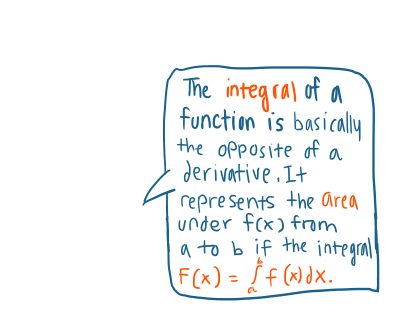 The integral of a
function is basically
the opposite of a
derivative. It
represents the area
under f(x) from
a to b if the integral
F(x) = ∫ₐᵇ f(x)dx.